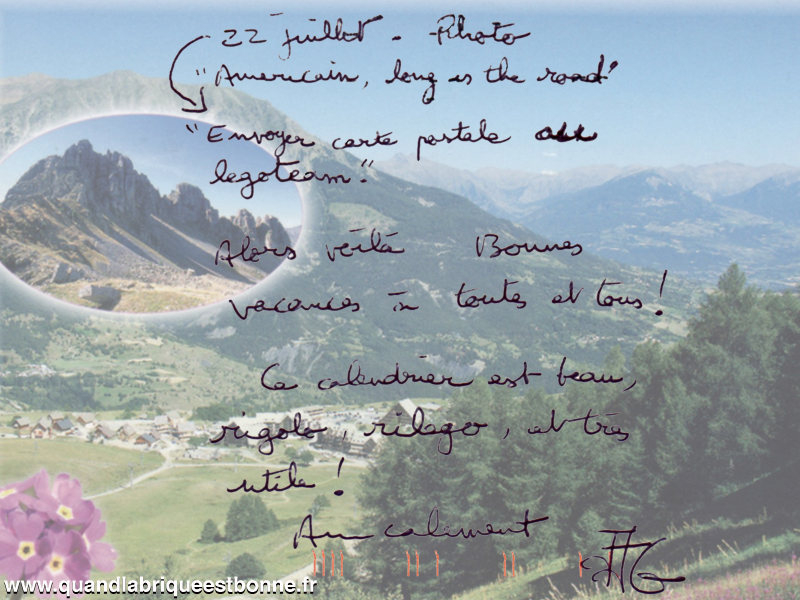 22 juillet - Photo
"Americain, long is the road"
"Envoyer carte postale au
legoteam".
Alors voilà Bonnes
vacances à toutes et tous!
Ce calendrier est beau,
rigolo, et très
utile!
Amicalement
www.quandlabriqueestbonne.fr